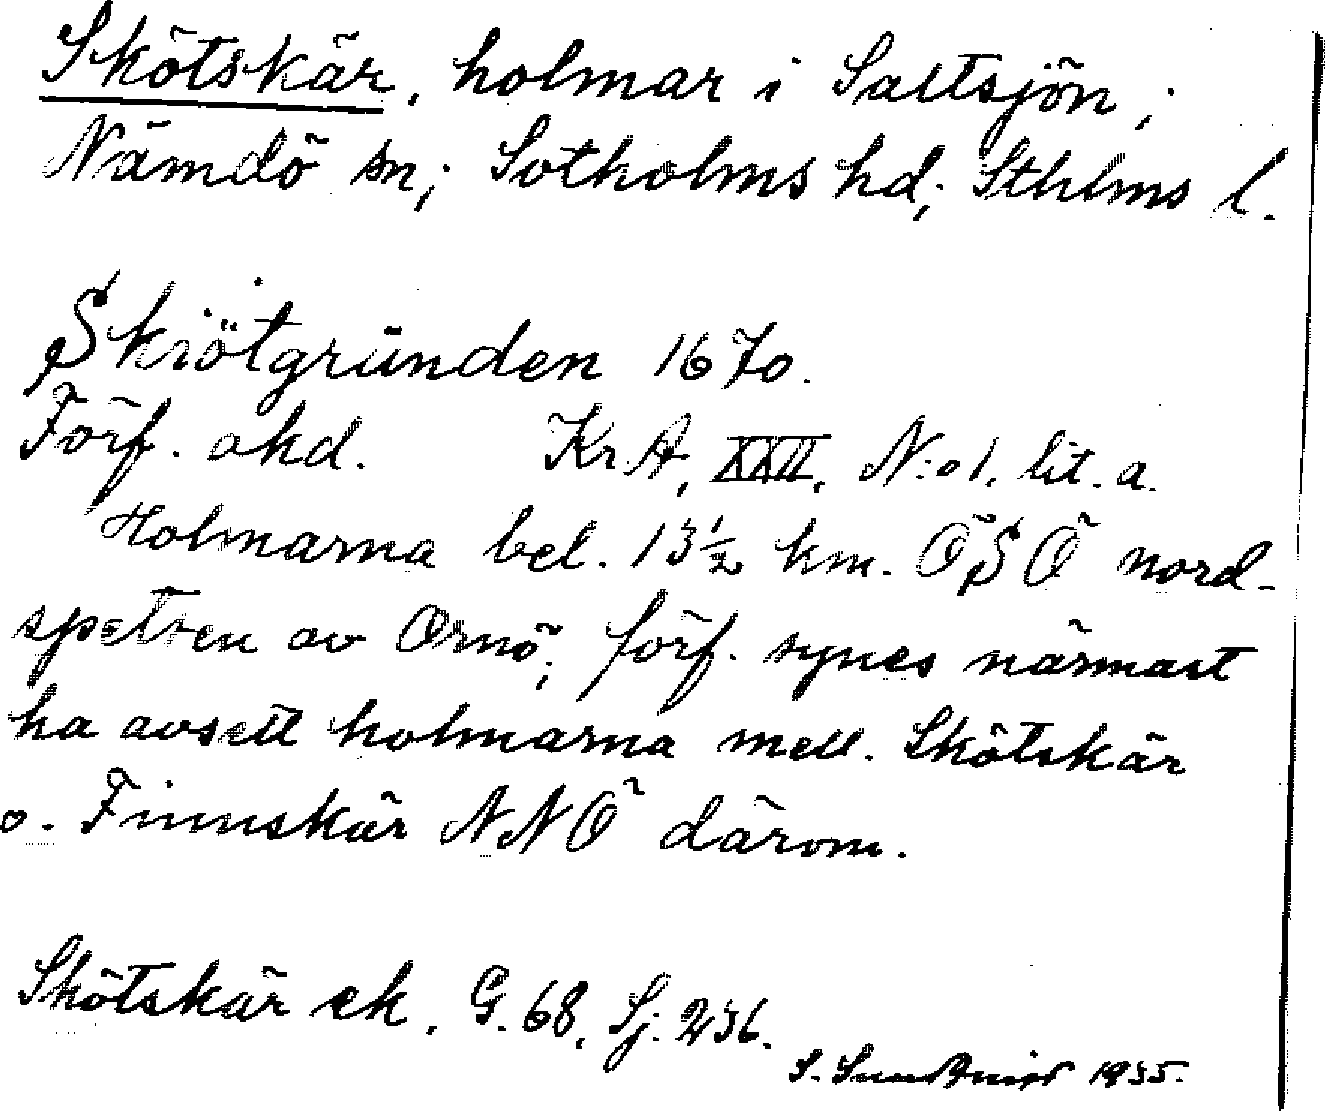 Skötskär, holmar i Saltsjön,;
Nämdö sn; Sotholms hd; Sthlms l.
Skiötgrunden 1670.
Förf. okd. Kr.A, XXII, N:o 1. lit. a.
Holmarna bel. 13½ km. ÖSÖ nord-
spetsen av Ornö; förf. synes närmast
ha avsett holmarna mell. Skötskär
o. Finnskär NNÖ därom.
Skötskär ek. G. 68, Sj. 236.
S. 1935.